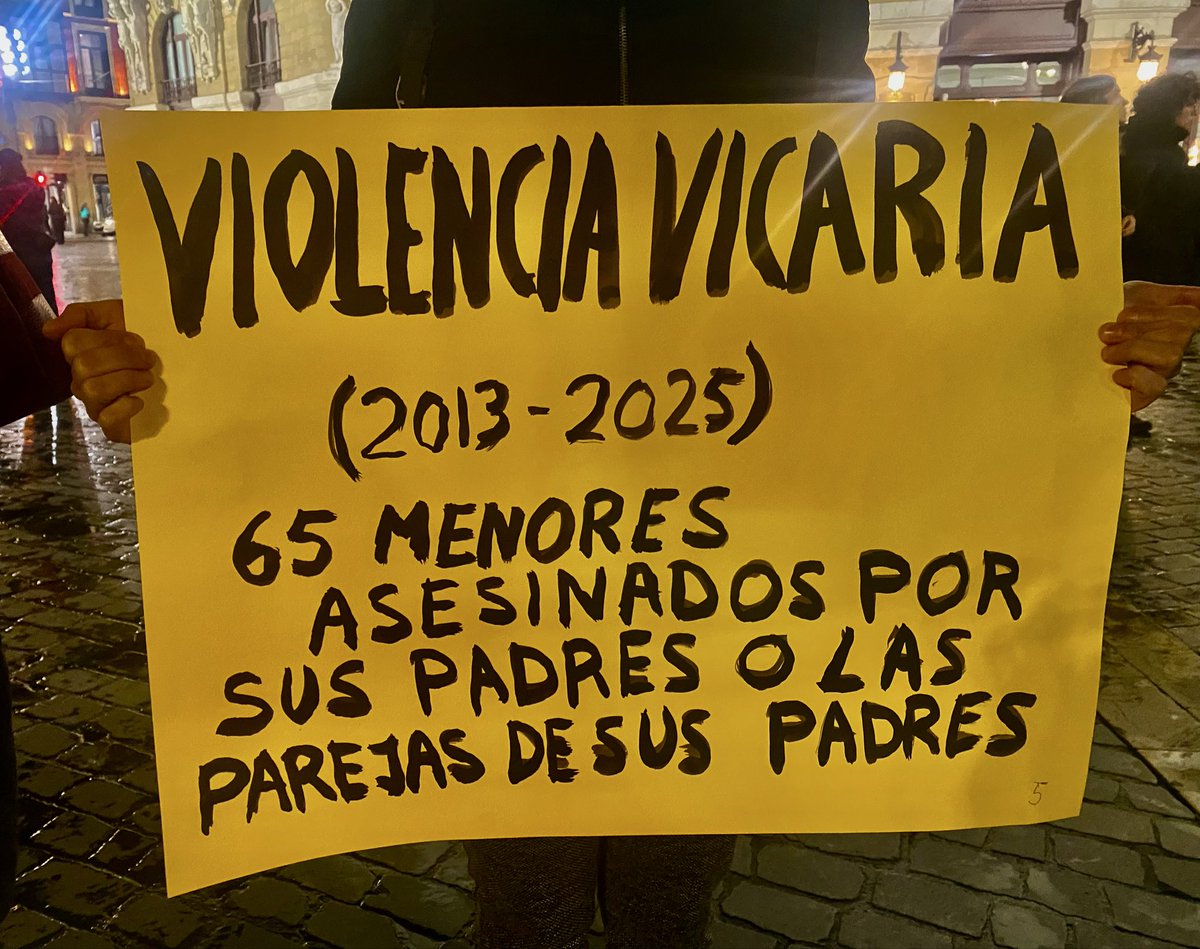 VIOLENCIA VICARIA
(2013-2025)
65 MENORES
ASESINADOS POR
SUS PADRES O LAS
PAREJAS DE SUS PADRES
5